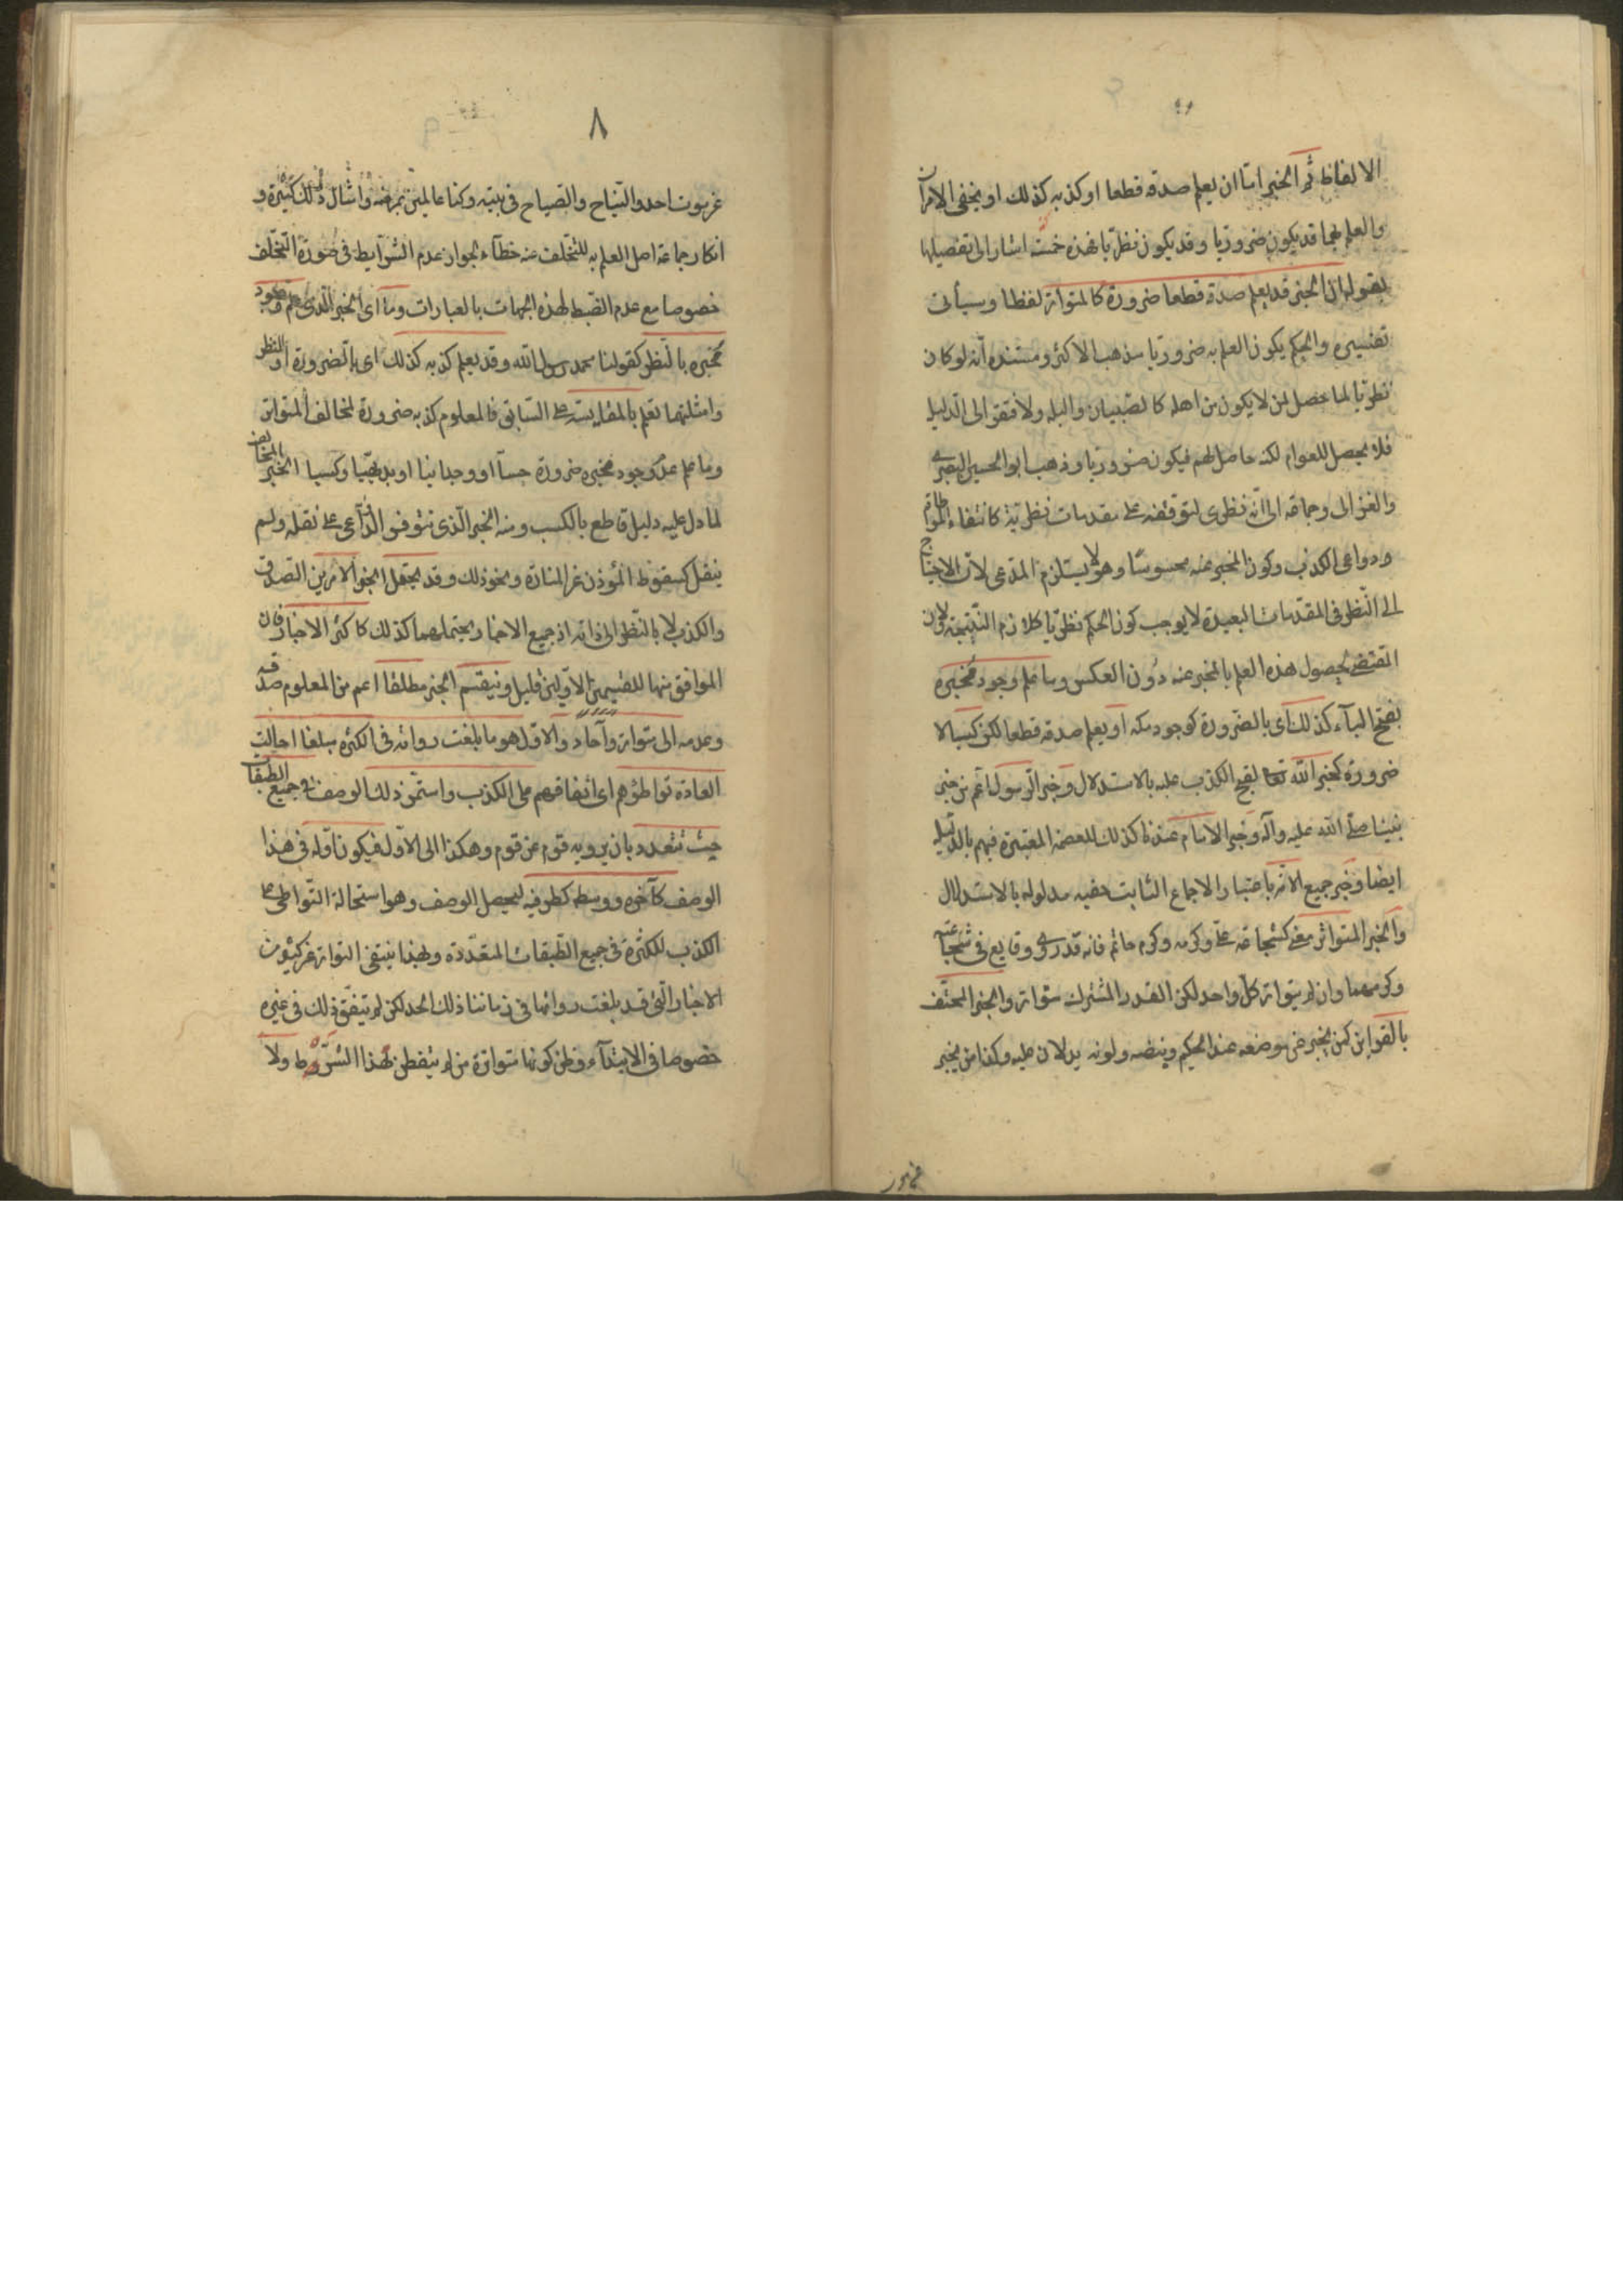 الالفاظ ثم الخبر اما ان يعلم صدقه قطعا او كذبه كذلك او يخفى الامران
والعلم بهما قد يكون ضروريا وقد يكون نظريا فهذه خمسة اشار الى تفصيلها
بقوله ان الخبر قد يعلم صدقه قطعا ضرورة كالمتواتر لفظا وسيأتى
تفسيره والحكم بكون العلم به ضروريا مذهب الاكثر ومستنده انه لو كان
نظريا لما حصل لمن لا يكون من اهله كالصبيان والبله ولافتقر الى الدليل
فلا يحصل للعوام لكنه حاصل لهم فيكون ضروريا وذهب ابو الحسين البصرى
والغزالى وجماعة الى انه نظرى لتوقفه على مقدمات نظرية كانتفاء المواطاة
ودواعى الكذب وكون المخبر عنه محسوسا وهو لا يستلزم المدعى لان الاحتياج
الى النظر فى المقدمات البعيدة لا يوجب كون الحكم نظريا كلازم النتيجة ولان
المقتضى لحصول هذه العلم بالمخبر عنه دون العكس وما علم وجود مخبره
بفتح الباء كذلك اى بالضرورة كوجود مكة او يعلم صدقه قطعا لكن كسبا لا
ضرورة كخبر الله تعالى لقبح الكذب عليه بالاستدلال وخبر الرسول اعم من خبر
نبينا صلى الله عليه وآله وخبر الامام عندنا كذلك للعصمة المعتبرة فيهم بالدليل
ايضا وخبر جميع الامة باعتبار الاجماع الثابت حقية مدلوله بالاستدلال
والخبر المتواتر معنى كشجاعة على وكرمه وكرم حاتم فانه قد روى وقايع فى شجاعته
وكرمهما وان لم يتواتر كل واحد لكن القدر المشترك متواتر والخبر المحتف
بالقراين كمن يخبر عن موضعه عند الحكيم ونبضه ولونه يدلان عليه وكذا من يخبر
٨
عن موت احد والنياح والصياح فى بيته وكنا عالمين بمرضه وامثال ذلك كثيرة و
انكار جماعة اصل العلم به للتخلف عنه خطأ لجواز عدم الشرايط فى صورة التخلف
خصوصا مع عدم الضبط لهذه الجهات بالعبارات وما اى الخبر الذى علم وجود
مخبره بالنظر كقولنا محمد رسول الله وقد يعلم كذبه كذلك اى بالضرورة او النظر
وامثلتهما تعلم بالمقايسة على السابق فالمعلوم كذبه ضرورة لمخالف المتواتر
وما علم عدم وجود مخبره ضرورة حسا او وجدانيا او بديهيا وكسبا الخبر المخالف
لما دل عليه دليل قاطع بالكسب ومنه الخبر الذى تتوفر الدواعى على نقله ولم
ينقل كسقوط المؤذن عن المنارة ونحو ذلك وقد يحتمل الخبر الامرين الصدق
والكذب لا بالنظر الى ذاته اذ جميع الاخبار يحتملهما كذلك كاكثر الاخبار فان
الموافق منها للقسمين الاولين قليل وينقسم الخبر مطلقا اعم من المعلوم صدقه
وعدمه الى متواتر وآحاد والاول هو ما بلغت رواته فى الكثرة مبلغا احالت
العادة تواطؤهم اى اتفاقهم على الكذب واستمر ذلك الوصف فى جميع الطبقات
حيث تتعدد بان يرويه قوم عن قوم وهكذا الى الاول فيكون اوله فى هذا
الوصف كآخره ووسطه كطرفيه ليحصل الوصف وهو استحالة التواطى على
الكذب للكثرة فى جميع الطبقات المتعددة وبهذا ينتفى التواتر عن كثير من
الاخبار التى قد بلغت رواتها فى زماننا ذلك الحد لكن لم يتفق ذلك فى غيره
خصوصا فى الابتداء وظن كونها متواترة من لم يتفطن لهذا الشرط ولا